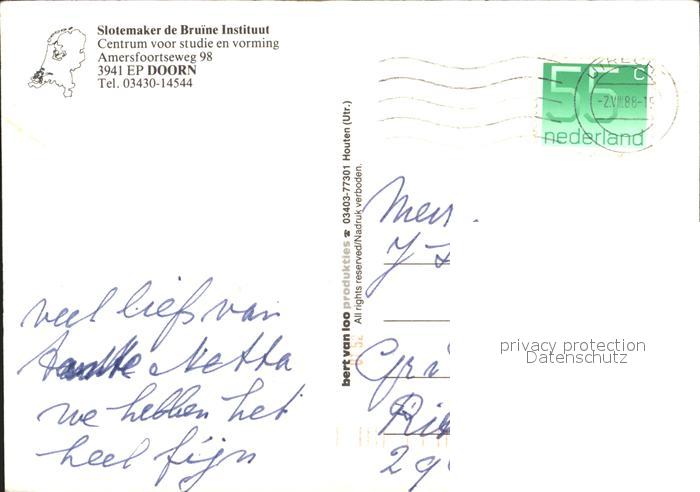 Slotemaker de Bruïne Instituut
Centrum voor studie en vorming
Amersfoortseweg 98
3941 EP DOORN
Tel. 03430-14544
55 c
nederland
UTRECH
-2.VIII.88-19
bert van loo produkties ☎ 03403-77301 Houten (Utr.)
All rights reserved/Nadruk verboden.
veel liefs van
tante Netta
we hebben het
heel fijn
Mevr
J-
29
privacy protection
Datenschutz